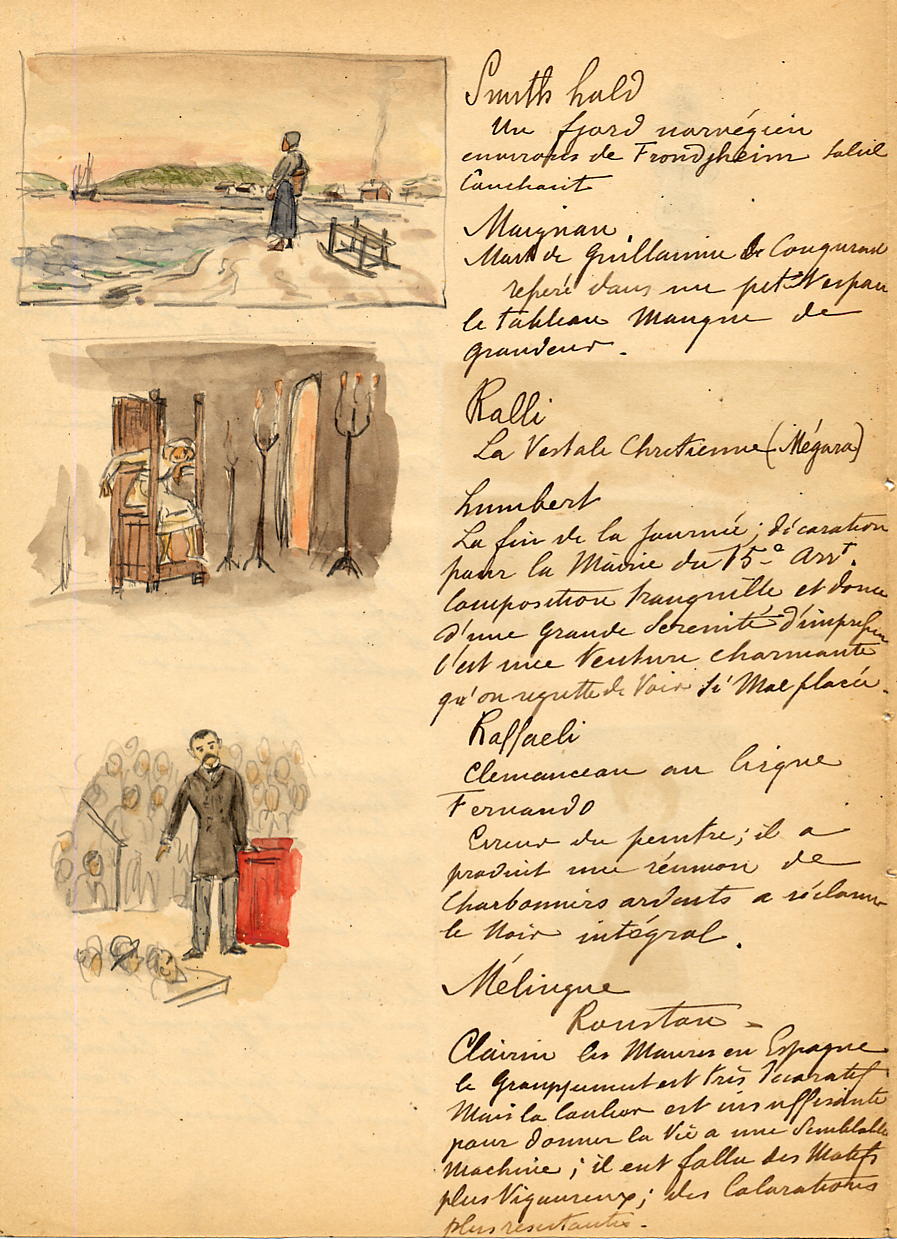 Smith hald
Un fjord norvégien
environs de Frondjheim Soleil
Couchant
Maignan
Mort de Guillaume le Conquerant
reperé dans un petit espau
le tableau manque de
grandeur.
Ralli
La Vestale Chretienne (Mégara)
Lumbert
La fin de la Journée ; décoration
pour la Mairie du 15e Arrt.
Composition tranquille et donne
d'une grande Serenité d'impression
C'est une Venture charmante
qu'on regrette de Voir Si Mal placée.
Raffaeli
Clemanceau au Cirque
Fernando
Erreur du peintre ; il a
produit une réunion de
Charbonniers ardents a réclamer
le Noir intégral.
Mélingue
Roustan -
Clairin les Maures en Espagne
le Grouppement est très decoratif
Mais la Couleur est insuffisante
pour donner la Vie a une Semblable
Machine ; il eut fallu des Motifs
plus Vigoureux ; des Colorations
plus